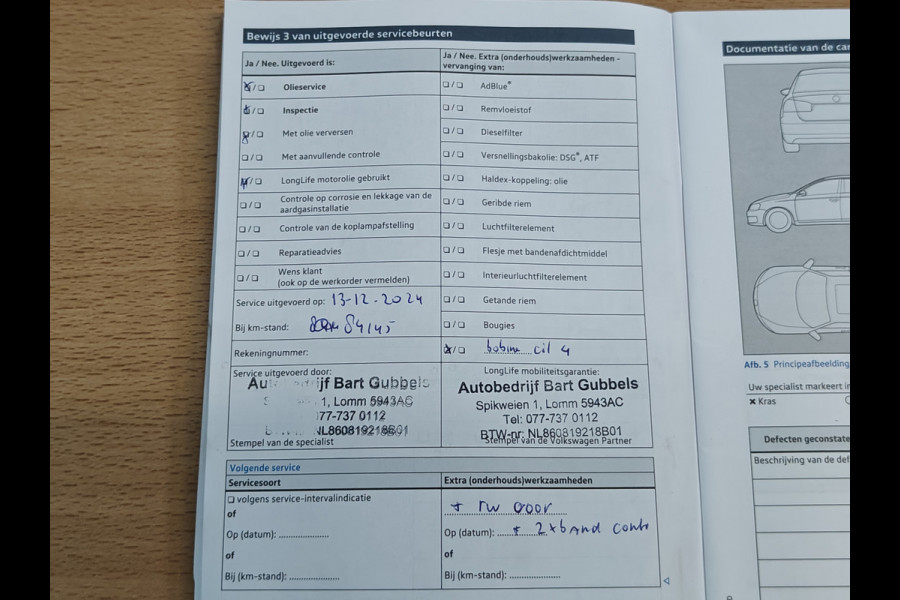 Bewijs 3 van uitgevoerde servicebeurten
Ja / Nee. Uitgevoerd is:
Ja / Nee. Extra (onderhouds)werkzaamheden -
vervanging van:
Olieservice
AdBlue®
Inspectie
Remvloeistof
Met olie verversen
Dieselfilter
Met aanvullende controle
Versnellingsbakolie: DSG®, ATF
LongLife motorolie gebruikt
Haldex-koppeling: olie
Controle op corrosie en lekkage van de
aardgasinstallatie
Geribde riem
Controle van de koplampafstelling
Luchtfilterelement
Reparatieadvies
Flesje met bandenafdichtmiddel
Wens klant
(ook op de werkorder vermelden)
Interieurluchtfilterelement
Service uitgevoerd op: 13-12-2024
Getande riem
Bij km-stand: 84145
Bougies
Rekeningnummer:
bobine cil 4
Service uitgevoerd door:
Autobedrijf Bart Gubbels
1, Lomm 5943AC
77-737 0112
NL860819218B01
Stempel van de specialist
LongLife mobiliteitsgarantie:
Autobedrijf Bart Gubbels
Spikweien 1, Lomm 5943AC
Tel: 077-737 0112
BTW-nr: NL860819218B01
Stempel van de Volkswagen Partner
Volgende service
Servicesoort
Extra (onderhouds)werkzaamheden
volgens service-intervalindicatie
of
+ rw voor
Op (datum): ..................
Op (datum): + 2x band conti
of
of
Bij (km-stand): ..................
Bij (km-stand): ..................
Documentatie van de car
Afb. 5 Principeafbeelding
Uw specialist markeert i
Kras
Defecten geconstate
Beschrijving van de def